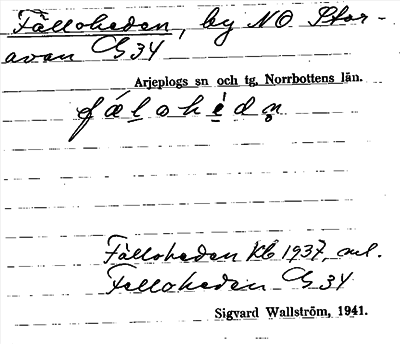 Fälloheden, by NO Stor-
avan G 34
Arjeplogs sn och tg, Norrbottens län.
Fälloheden Kb 1937, anl.
Felloheden G 34
Sigvard Wallström, 1941.